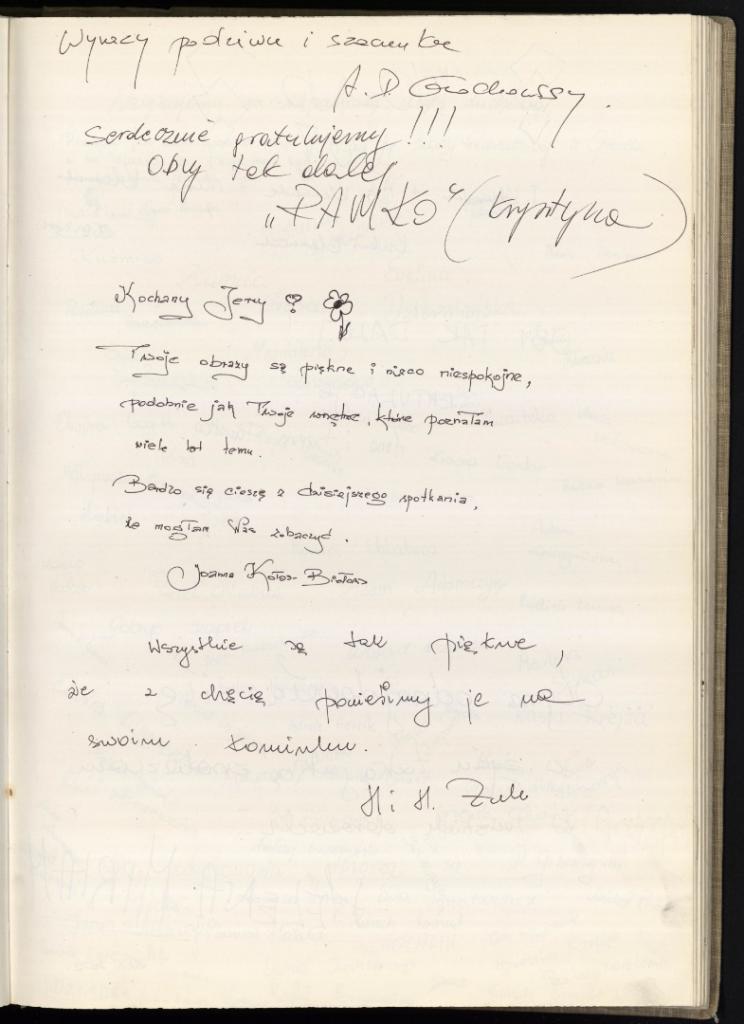 Wyrazy podziwu i szacunku
A. D Grochowscy.
Serdecznie gratulujemy !!!
Oby tak dalej
„PAMŁO" (Krystyna)
Kochany Jerzy
Twoje obrazy są piękne i nieco niespokojne,
podobnie jak Twoje wnętrze, które poznałam
wiele lat temu.
Bardzo się cieszę z dzisiejszego spotkania,
że mogłam Was zobaczyć.
Joanna Kołos-Białows
Wszystkie są tak piękne,
że z chęcią powiesimy je na
swoim kominku.
H i H. Zuk